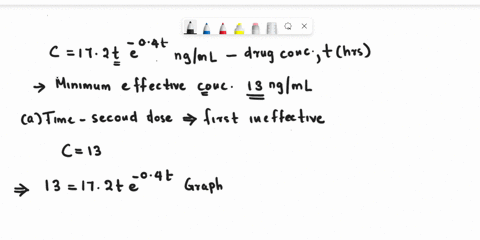 C = 17.2t e^-0.4t ng/mL – drug conc., t (hrs)
→ Minimum effective conc. 13 ng/mL
(a) Time – second dose ⇒ first ineffective
C = 13
⇒ 13 = 17.2t e^-0.4t Graph